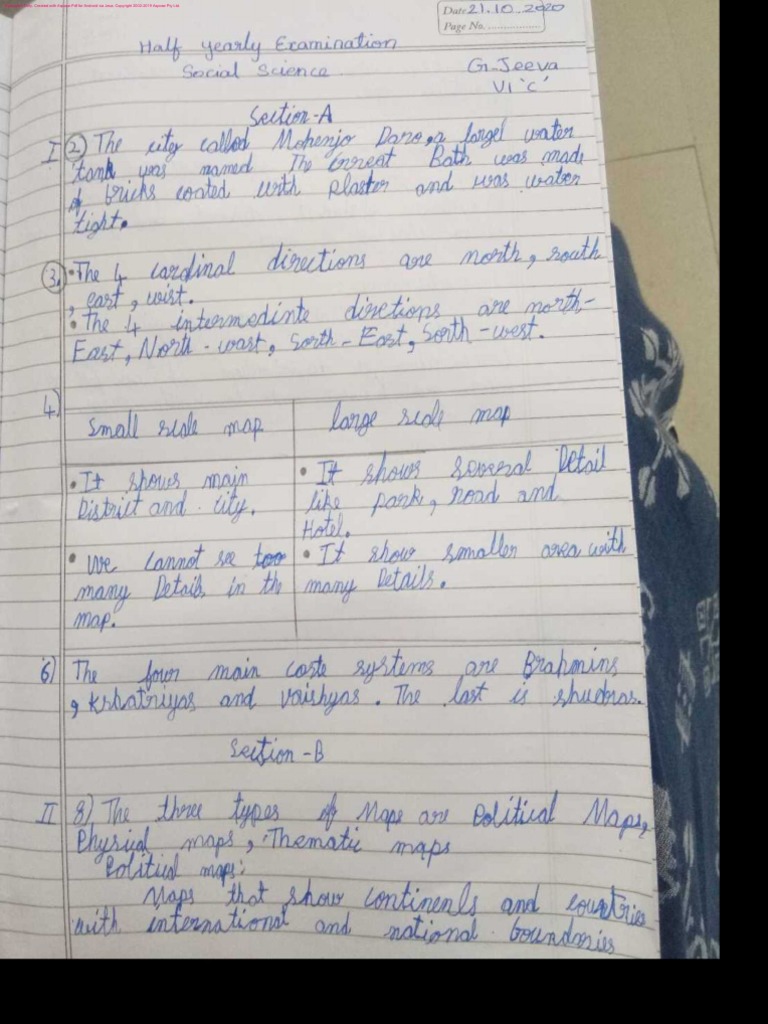 Date 21.10.2020
Page No.
Half yearly Examination
Social Science
G.Jeeva
VI 'C'
Section-A
I 2) The city called Mohenjo Daro, a largel water
tank was named The Great Bath was made
of bricks coated with Plaster and was water
tight.
3. • The 4 cardinal directions are north, south
, east, wist.
• The 4 intermedinte diretions are north-
East, North-wast, Sorth-East, Sorth-west.
4)
Small scale map
large scale map
• It shows main
District and city.
• It shows several Detail
like park, road and
Hotel.
• we cannot se too
many Details in the
map.
• It show smaller area with
many Details.
6) The four main caste systems are Brahmins
, Kshatriyas and vaishyas. The last is shudras.
Section-B
II 8) The three types of Maps are Political Maps,
Physical maps, Thematic maps
Political maps:
Maps that show continents and countries
with international and national boundaries